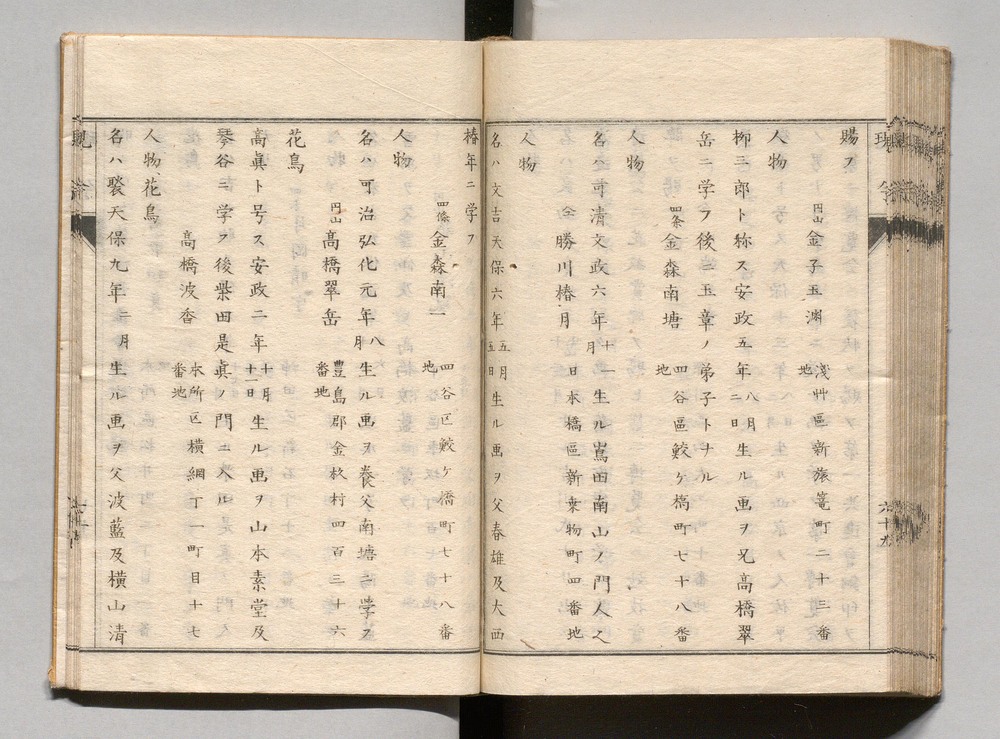 賜フ
円山 金子玉淵 淺艸區新旅篭町二十三番地
人物
柳三郎ト称ス安政五年八月二日生ル画ヲ兄高橋翠
岳ニ学フ後ニ玉章ノ弟子トナル
四条 金森南塘 四谷區鮫ケ橋町七十八番地
人物
名ハ可清文政六年十一月生ル嶌田南山ノ門人
仝 勝川椿月 日本橋區新乗物町四番地
人物
名ハ文吉天保六年五月五日生ル画ヲ父春雄及大西
椿年ニ学フ
四條 金森南一 四谷区鮫ケ橋町七十八番地
人物
名ハ可治弘化元年八月生ル画ヲ養父南塘ニ学フ
円山 高橋翠岳 豊島郡金杉村四百三十六番地
花鳥
高眞ト号ス安政二年十月十一日生ル画ヲ山本素堂及
琴谷ニ学フ後柴田是眞ノ門ニ入ル
高橋波香 本所区横網丁一町目十七番地
人物花鳥
名ハ
天保九年二月生ル画ヲ父波藍及横山清
六十九